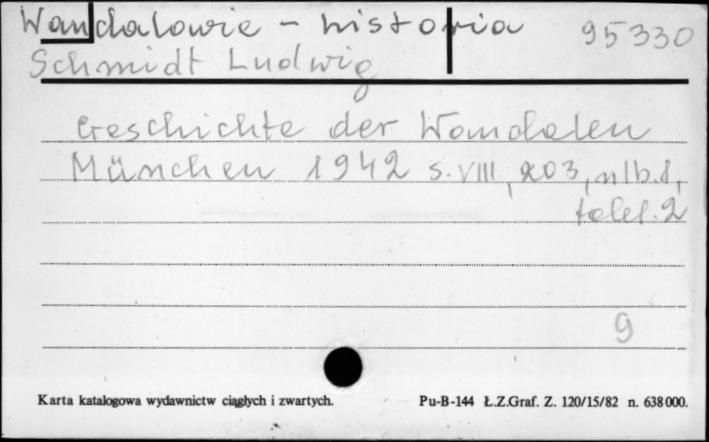 Wandalowie - historia 95330
Schmidt Ludwig
Geschichte der Wandalen
München 1942 s. VIII, 203, nlb. 1,
tabl. 2
9
Karta katalogowa wydawnictw ciągłych i zwartych. Pu-B-144 Ł.Z.Graf. Z. 120/15/82 n. 638000.